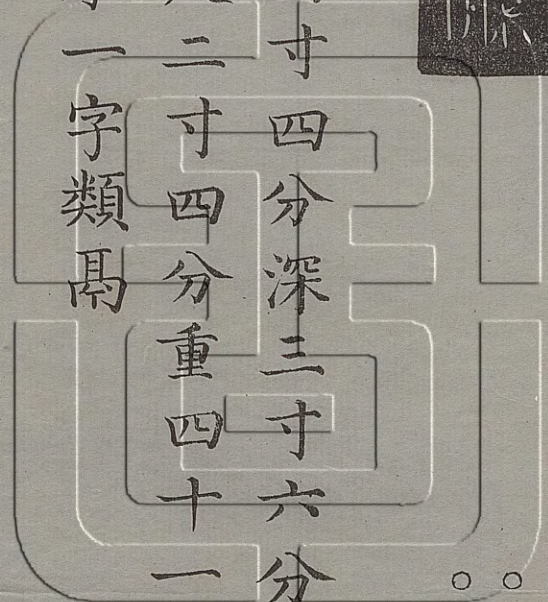 寸四分深三寸六分
二寸四分重四十一
一字類鬲